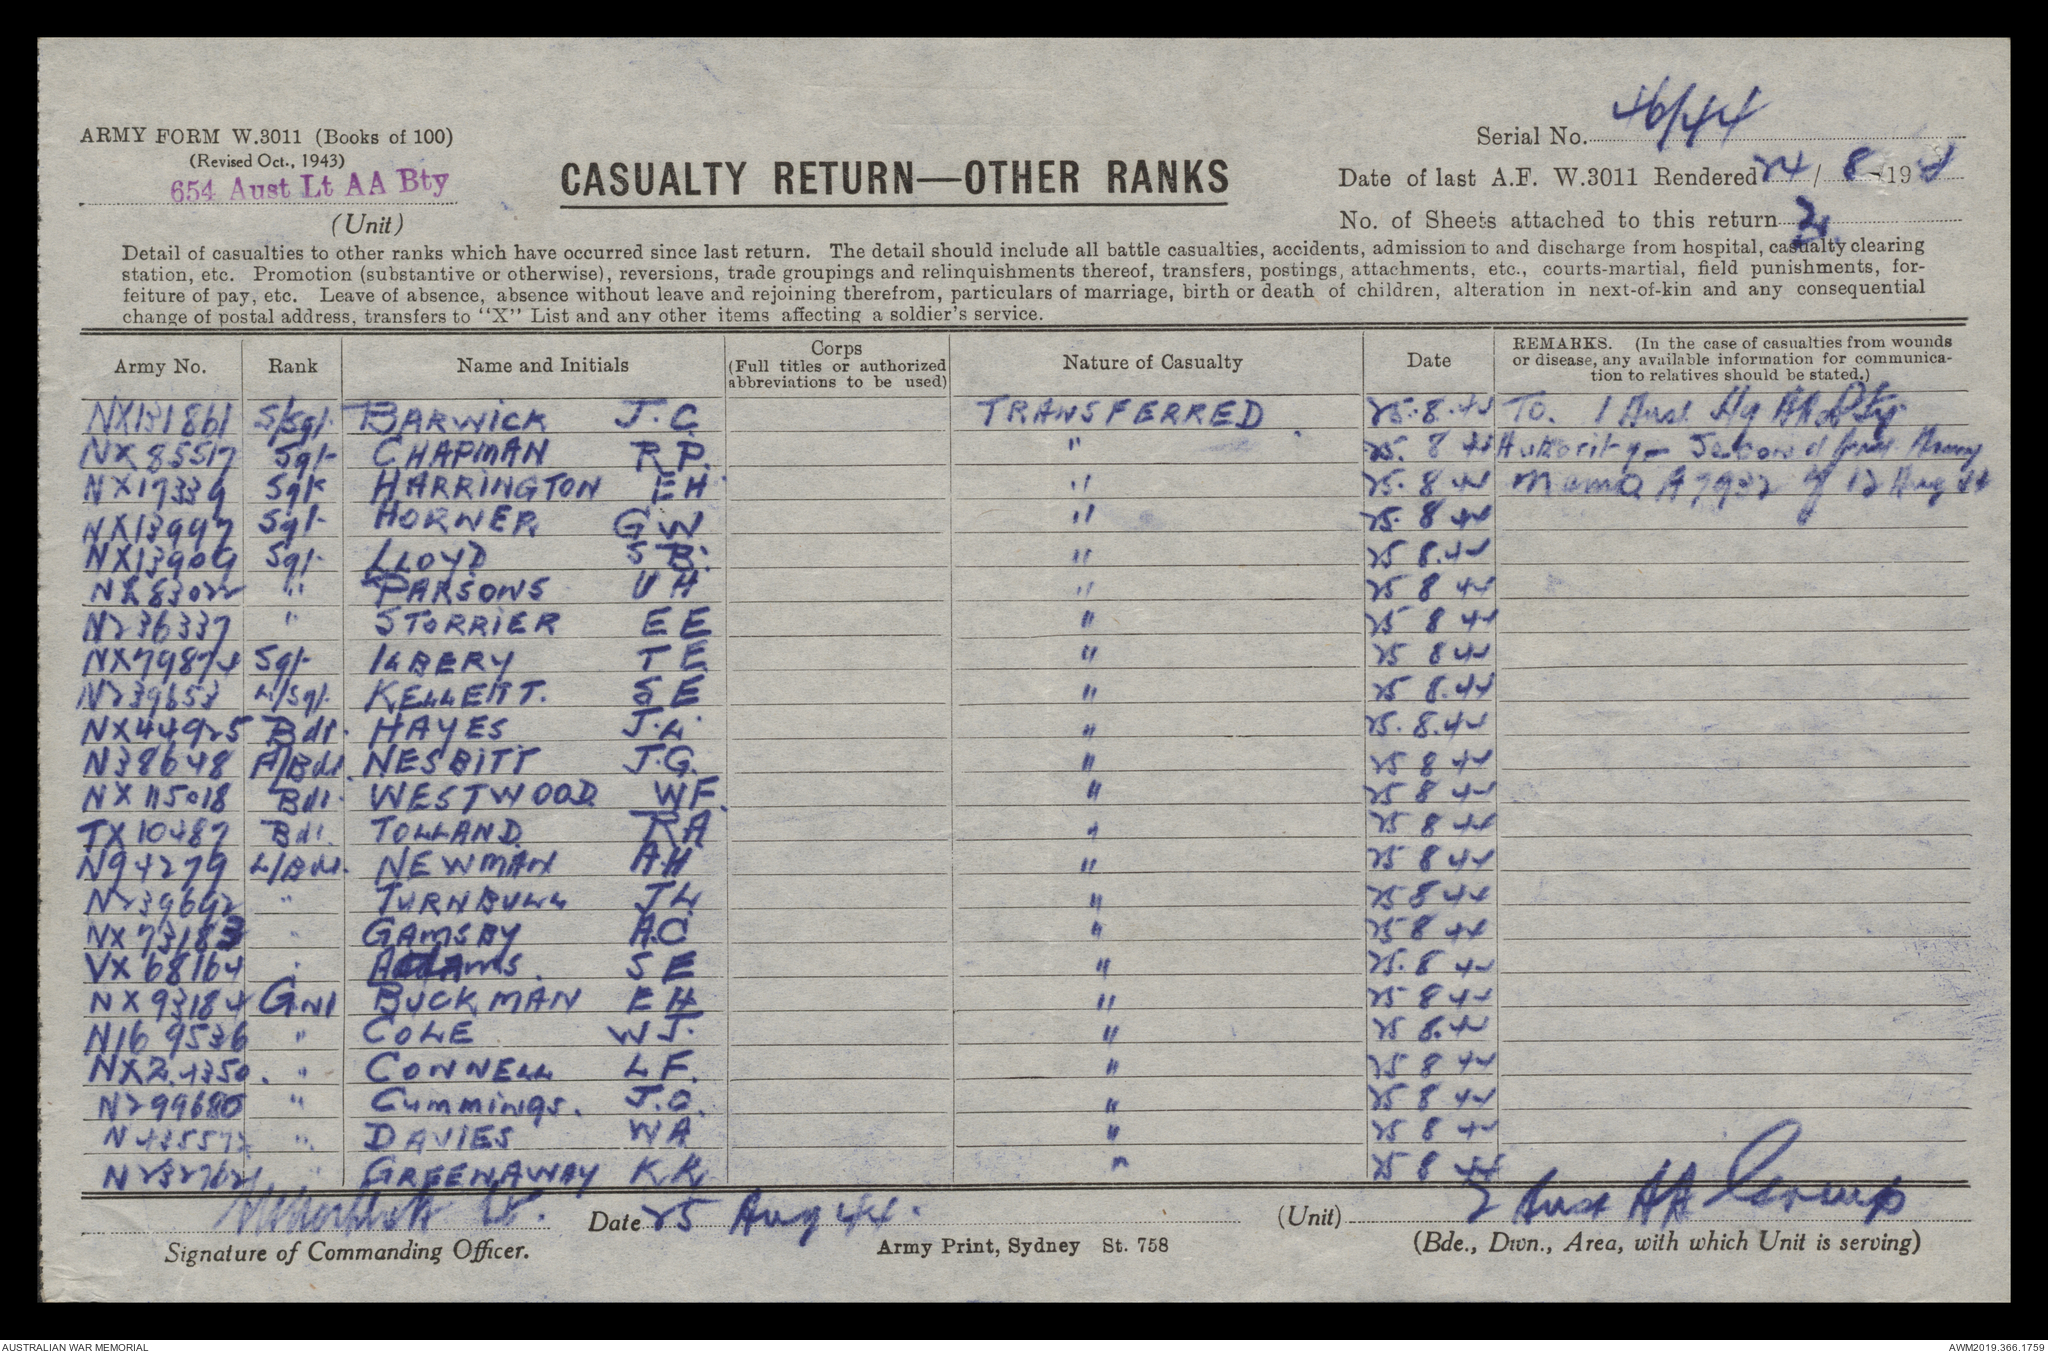 Serial No. 46/44
ARMY FORM W.3011 (Books of 100)
(Revised Oct., 1943)
654 Aust Lt AA Bty
(Unit)
CASUALTY RETURN—OTHER RANKS
Date of last A.F. W.3011 Rendered 24/8 194
No. of Sheets attached to this return 2
Detail of casualties to other ranks which have occurred since last return. The detail should include all battle casualties, accidents, admission to and discharge from hospital, casualty clearing
station, etc. Promotion (substantive or otherwise), reversions, trade groupings and relinquishments thereof, transfers, postings, attachments, etc., courts-martial, field punishments, for-
feiture of pay, etc. Leave of absence, absence without leave and rejoining therefrom, particulars of marriage, birth or death of children, alteration in next-of-kin and any consequential
change of postal address, transfers to "X" List and any other items affecting a soldier's service.
Army No. Rank Name and Initials Corps (Full titles or authorized abbreviations to be used) Nature of Casualty Date REMARKS. (In the case of casualties from wounds or disease, any available information for communica- tion to relatives should be stated.)
NX131861 S/Sgt BARWICK J.C. TRANSFERRED 25.8.44 To. 1 Aust Hq AA Bty
NX85517 Sgt CHAPMAN R P. " 25. 8 44 Authority - Second Aust Army
NX17339 Sgt HARRINGTON E H " 25. 8 44 memo A7932 of 12 Aug 44
NX13997 Sgt HORNER G W " 25. 8 44
NX13909 Sgt LLOYD S B. " 25 8.44
NX83022 " PARSONS V H " 25 8 44
N236337 " STORRIER E E " 25 8 44
NX79874 Sgt ILBERY T E " 25 8 44
N239653 L/Sgt KELLETT. S E " 25 8.44
NX44925 Bdr. HAYES J.L. " 25.8.44
N38648 A/Bdr. NESBITT J.G. " 25 8 44
NX115018 Bdr. WESTWOOD W F. " 25 8 44
TX10487 Bdr. TOLLAND R A " 25 8 44
N94279 L/Bdr. NEWMAN A.H " 25 8 44
N239692 " TURNBULL J L " 25 8 44
NX73183 " GAMSBY A.C " 25 8 44
VX68164 " ADAMS. S E " 25.8 44
NX93184 Gnr BUCKMAN E H " 25 8 44
N169536 " COLE W J. " 25 8.44
NX24350. " CONNELL L F. " 25 8 44
N299680 " Cummings. J.O. " 25 8 44
N435572 " DAVIES W A " 25 8 44
N232762 " GREENAWAY K K " 25 8 44
Lt. Date 25 Aug 44. (Unit) 2 Aust AA Group
Signature of Commanding Officer. Army Print, Sydney St. 758 (Bde., Divn., Area, with which Unit is serving)
AUSTRALIAN WAR MEMORIAL AWM2019.366.1759